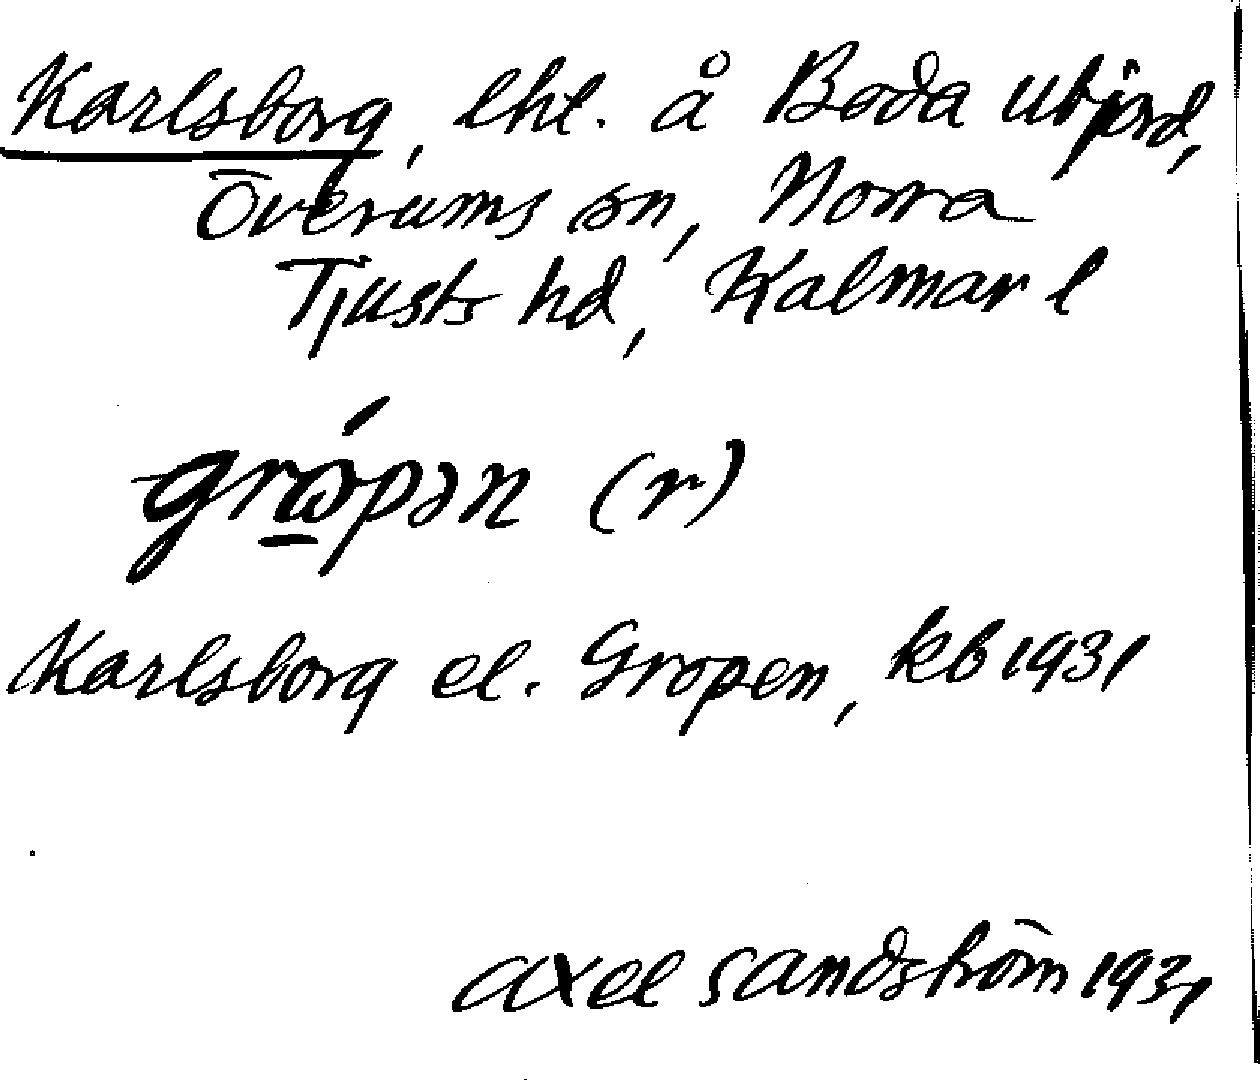 Karlsborg, lht. å Boda utjord,
Överums sn, Norra
Tjusts hd, Kalmar l
grώ̲pən (r)
Karlsborg el. Gropen, kb 1931
Axel Sandström 1931